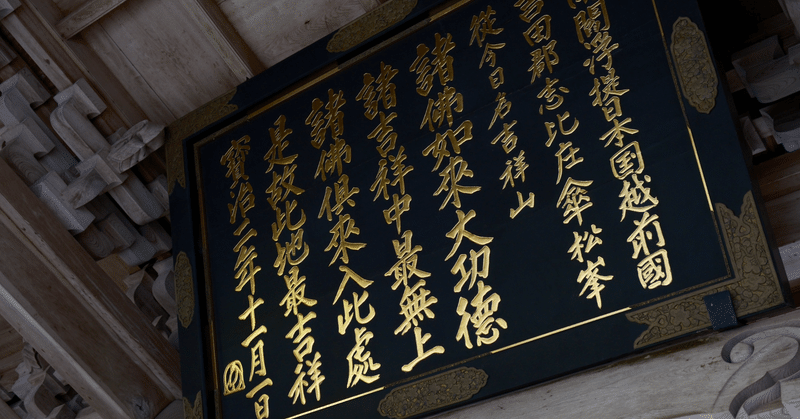 閻浮從日本国越前國
吉田郡志比庄傘松峯
從今日名吉祥山
諸佛如來大功德
諸吉祥中最無上
諸佛俱來入此處
是故此地最吉祥
寳治二年十一月一日